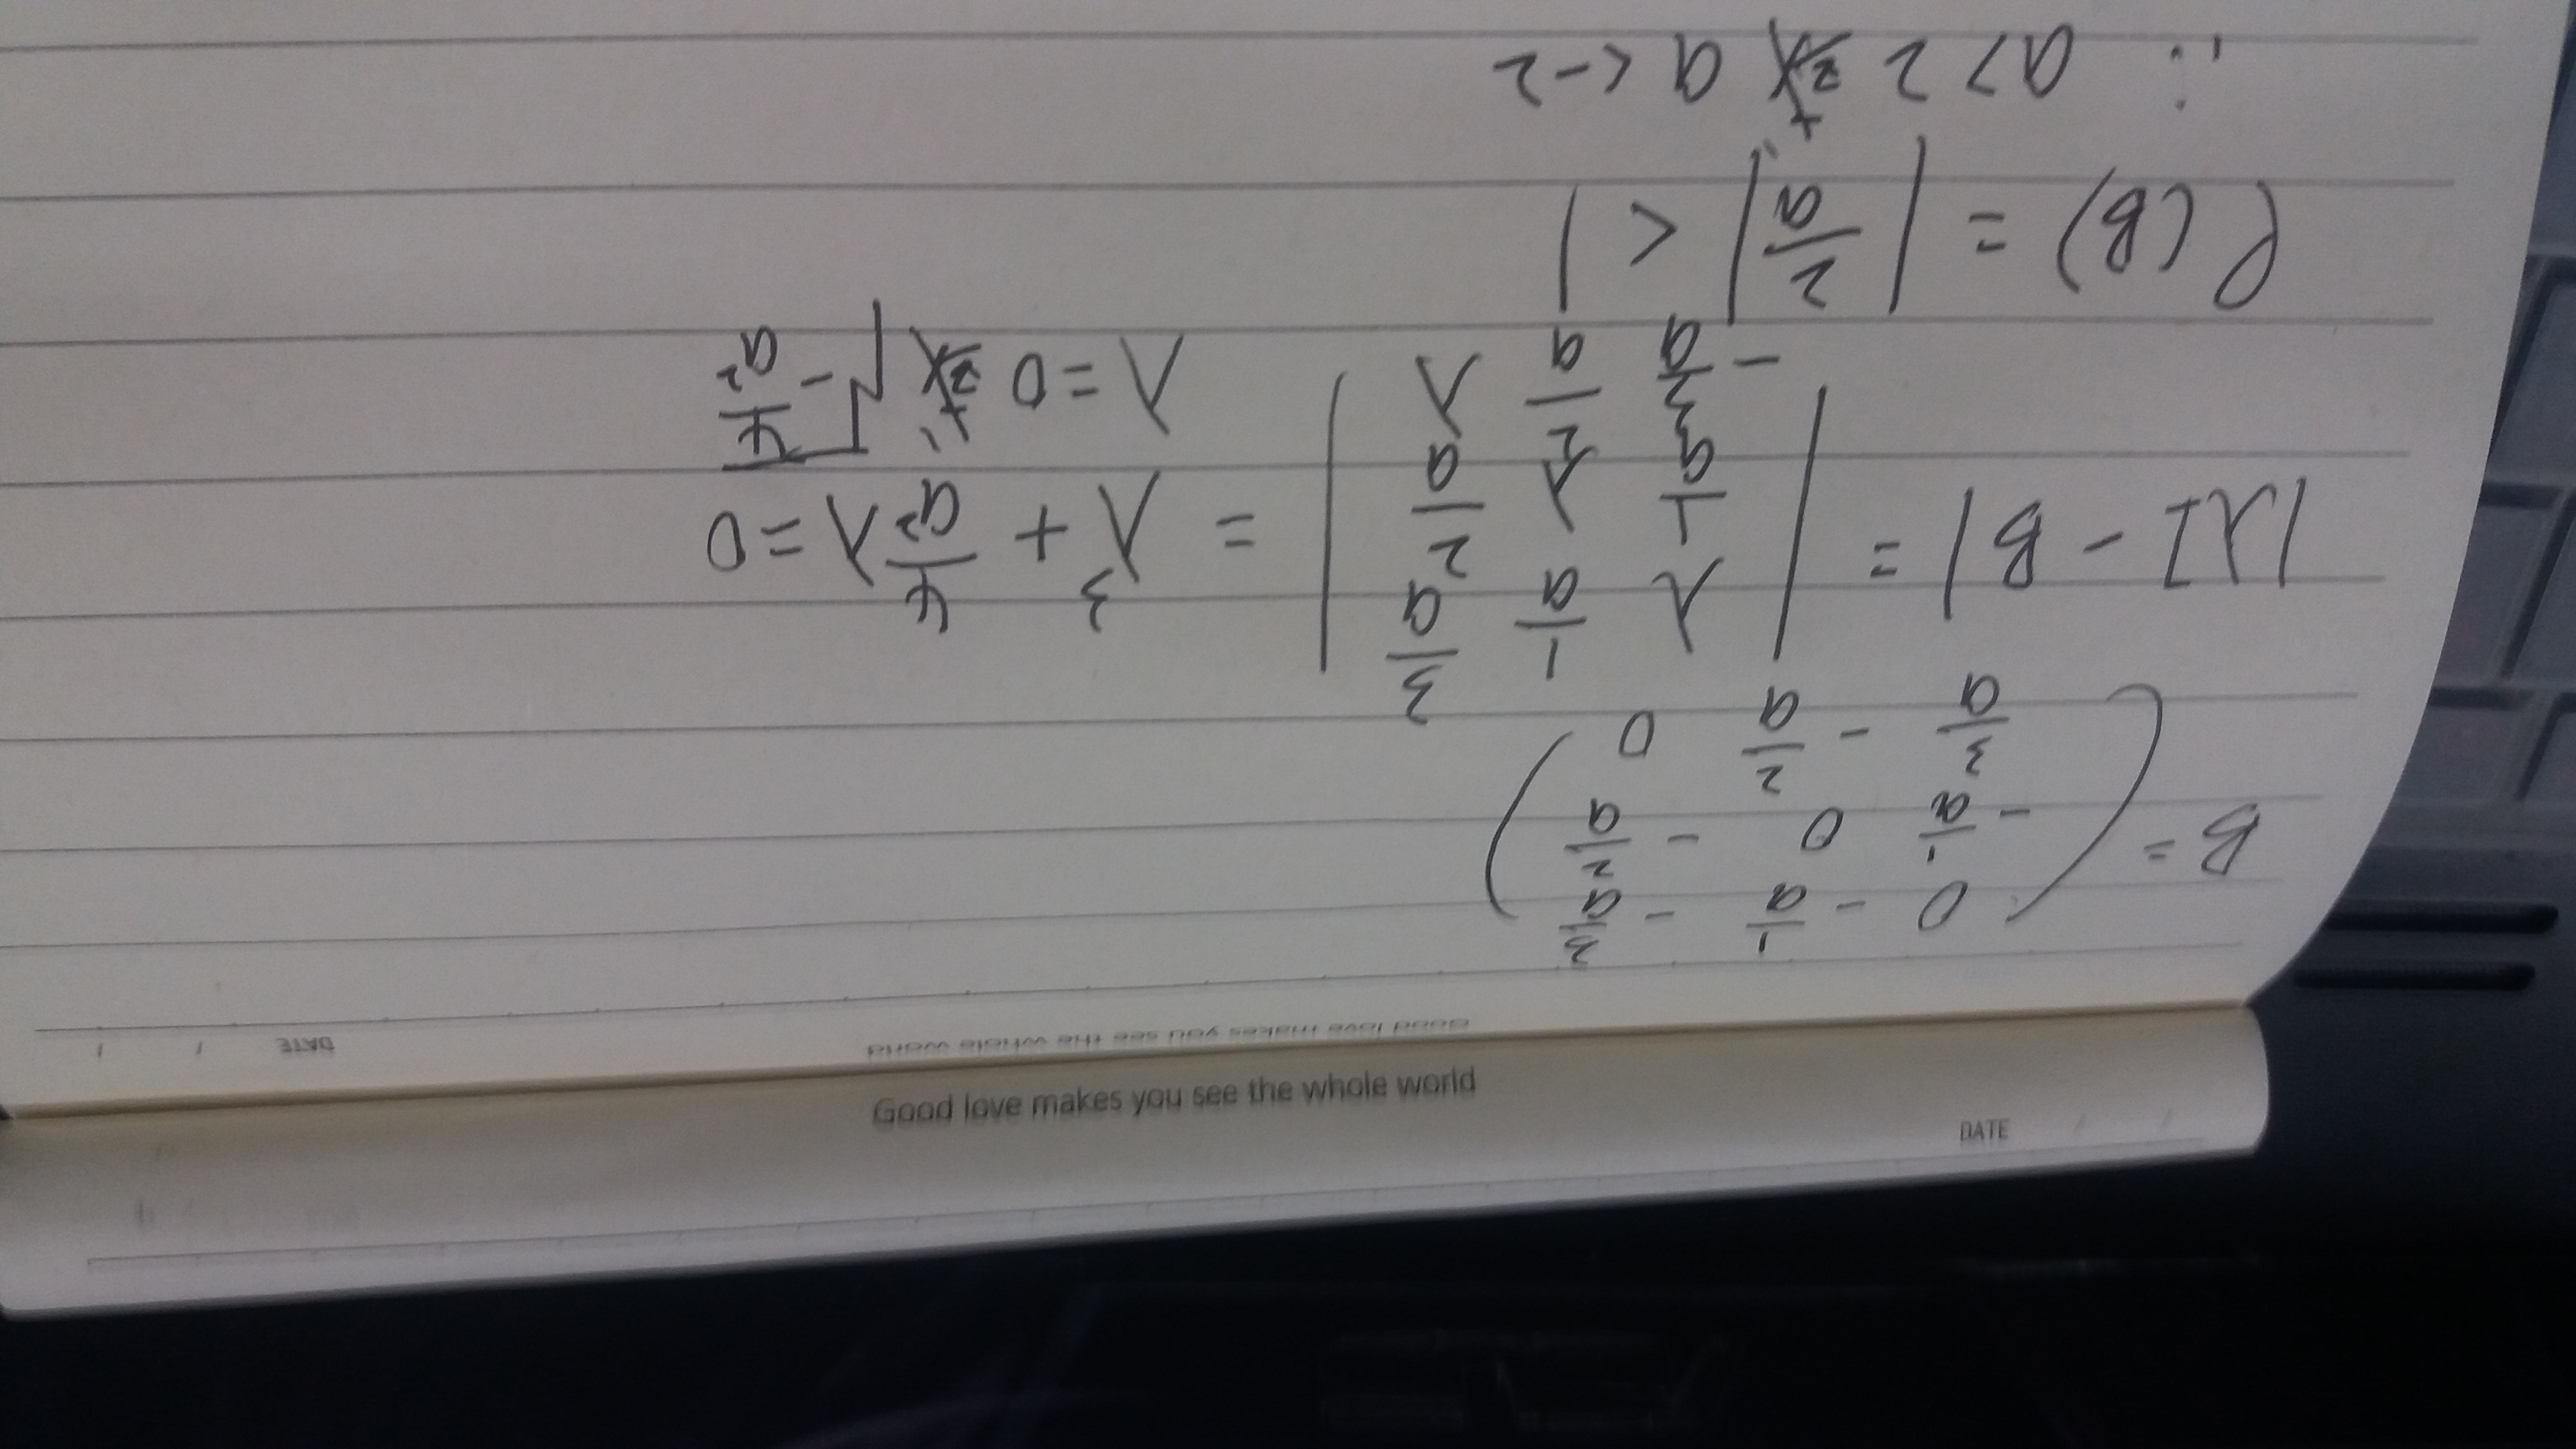 DATE / /
Good love makes you see the whole world
Good love makes you see the whole world DATE / /
B = ( 0 -1/a -3/a
-1/a 0 -2/a
3/a -2/a 0 )
|λI - B| = | λ 1/a 3/a
1/a λ 2/a
-3/a 2/a λ | = λ³ + 4/a² λ = 0
λ = 0 或 √(-4/a²)
ρ(B) = |2/a| < 1
∴ a > 2 或 a < -2